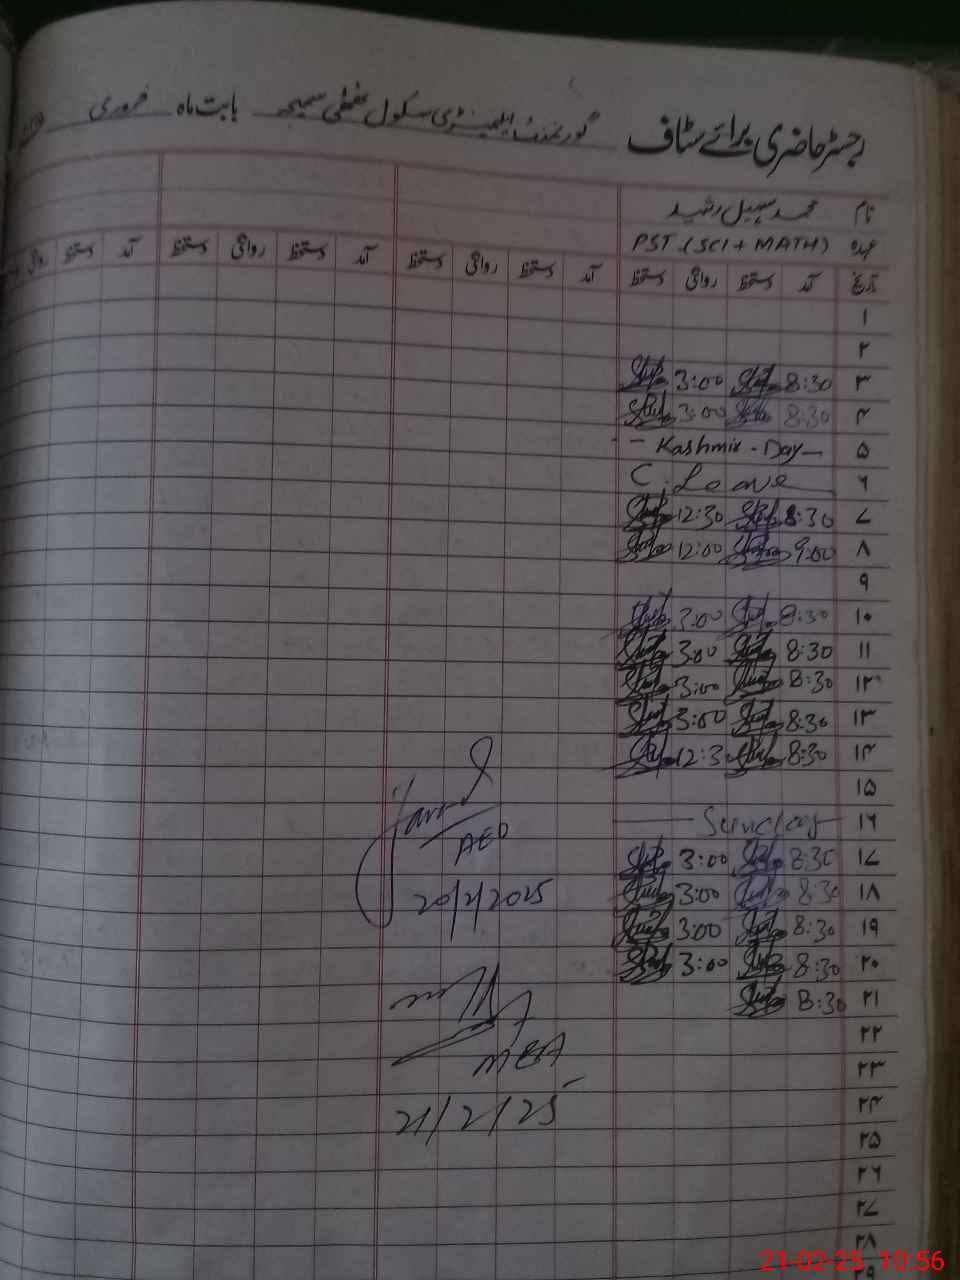 رجسٹر حاضری برائے سٹاف گورنمنٹ ایلیمنٹری سکول بابت ماہ فروری
نام محمد سہیل رشید
عہدہ PST.(SCI+MATH)
تاریخ آمد دستخط روانگی دستخط آمد دستخط روانگی دستخط آمد دستخط روانگی دستخط آمد دستخط روانگی
۱
۲
۳ 8:30 3:00
۴ 8:30 3:00
۵ - Kashmir - Day -
۶ C. Leave
۷ 8:30 12:30
۸ 9:00 12:00
۹
۱۰ 8:30 3:00
۱۱ 8:30 3:00
۱۲ 8:30 3:00
۱۳ 8:30 3:00
۱۴ 8:30 12:30
۱۵
۱۶ Sunday
۱۷ 8:30 3:00
۱۸ 8:30 3:00
۱۹ 8:30 3:00
۲۰ 8:30 3:00
۲۱ 8:30
۲۲
۲۳
۲۴
۲۵
۲۶
۲۷
۲۸
۲۹
AEO
20/2/2025
MEA
21/2/25
21-02-25 10:56